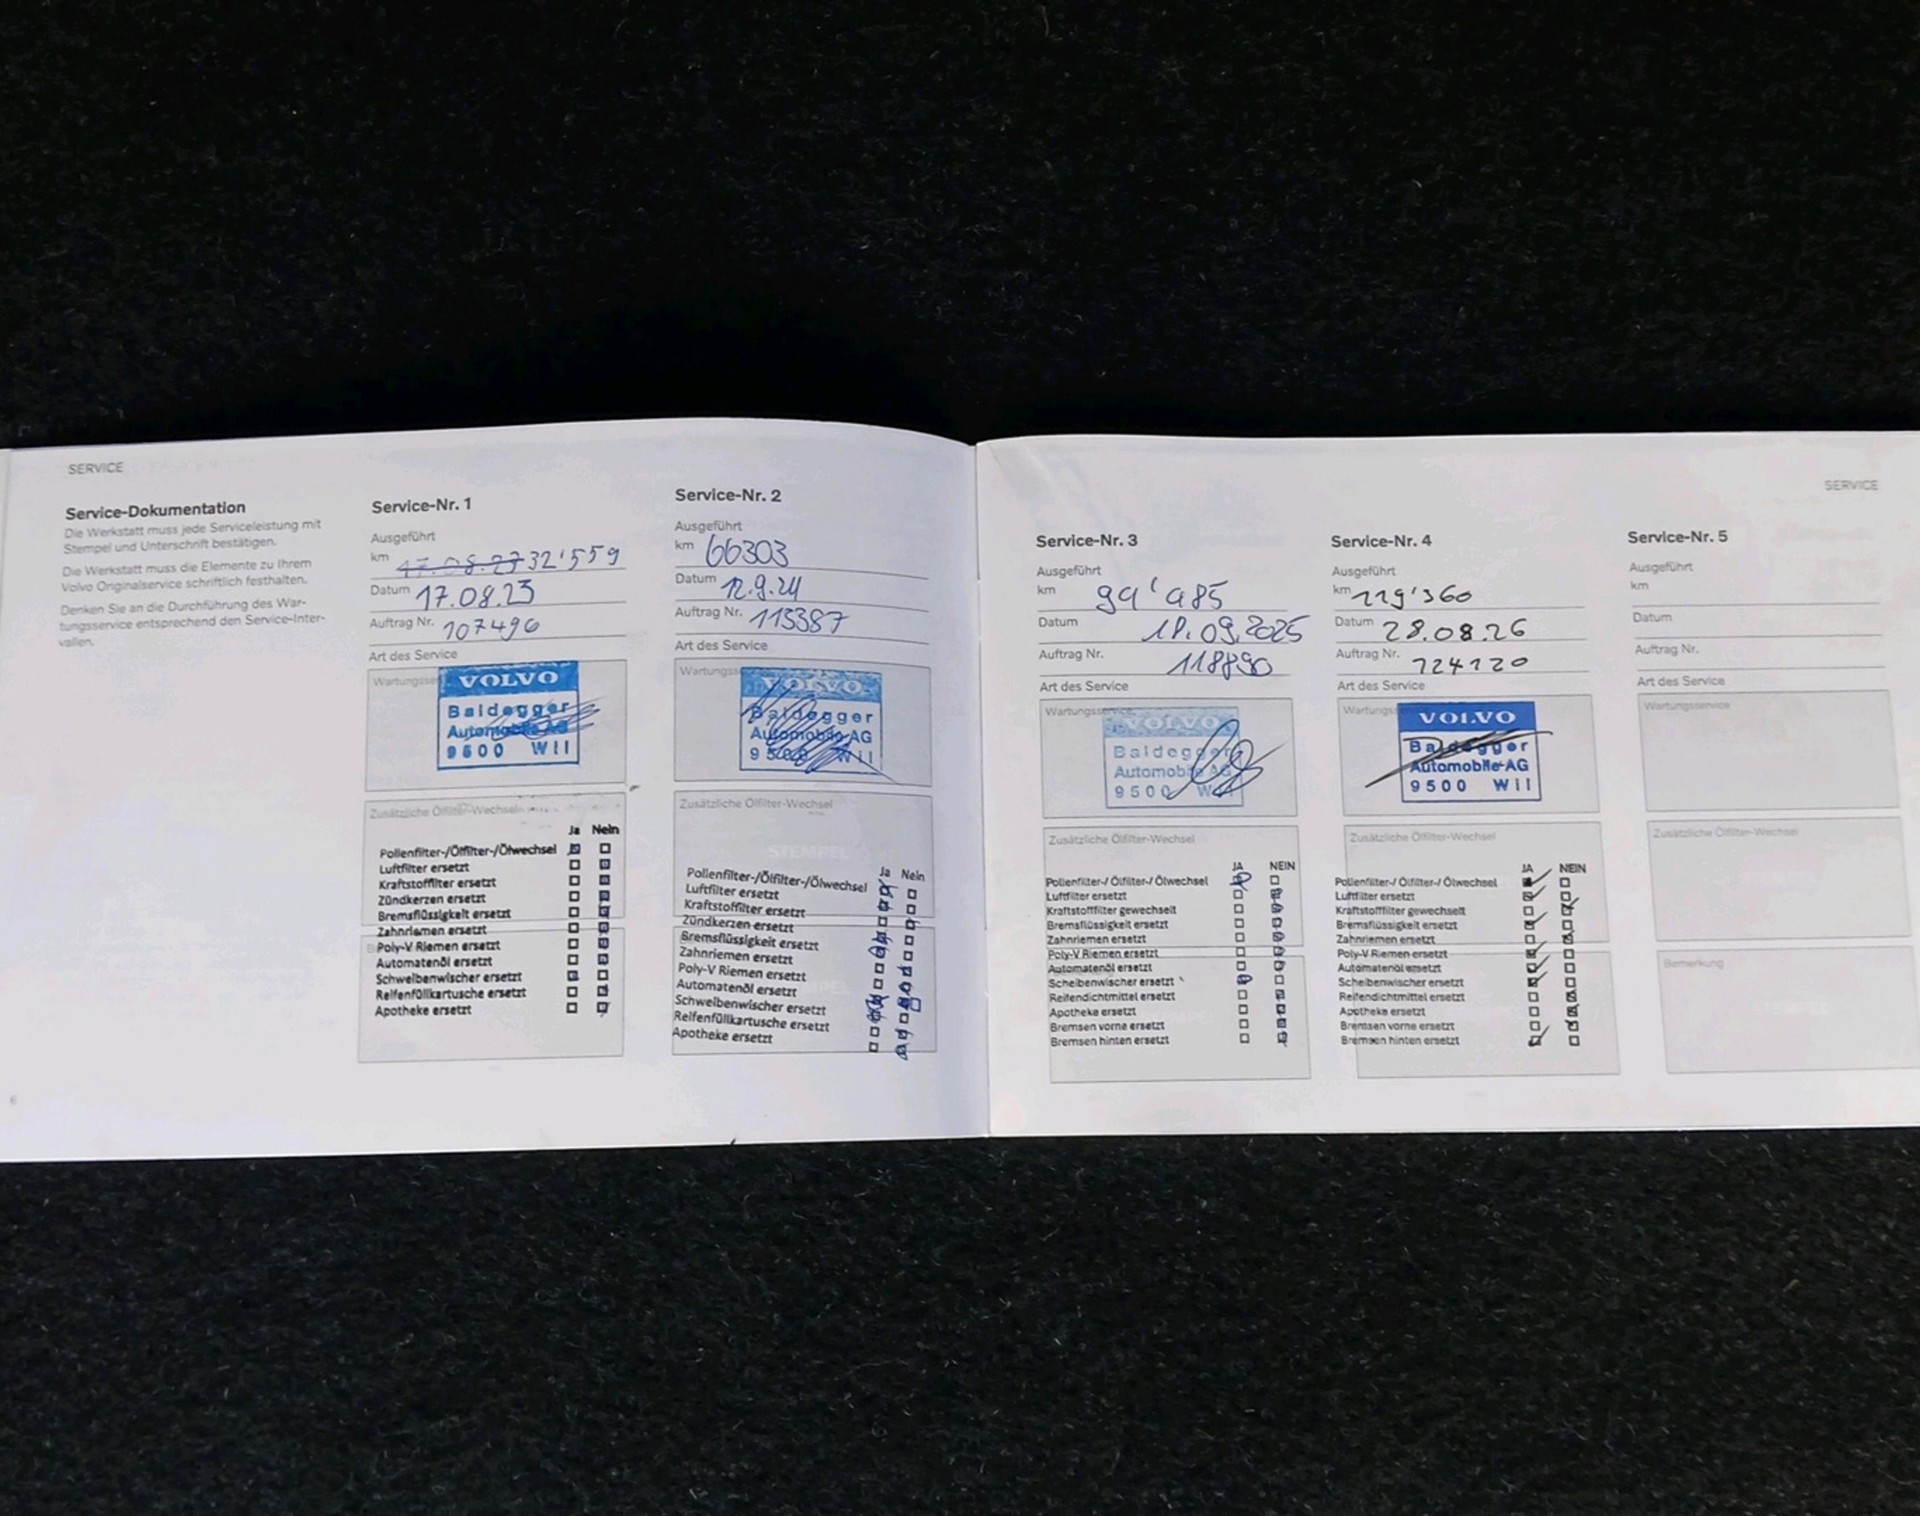 SERVICE
Service-Dokumentation
Die Werkstatt muss jede Serviceleistung mit
Stempel und Unterschrift bestätigen.
Die Werkstatt muss die Elemente zu Ihrem
Volvo Originalservice schriftlich festhalten.
Denken Sie an die Durchführung des War-
tungsservice entsprechend den Service-Inter-
vallen.
6
Service-Nr. 1
Ausgeführt
km 17.08.23 32'559
Datum 17.08.23
Auftrag Nr. 107496
Art des Service
Wartungsse
VOLVO
Baldegger
Automobile AG
9500 Wil
Zusätzliche Ölfilter-Wechsel
Ja Nein
Pollenfilter-/Ölfilter-/Ölwechsel
Luftfilter ersetzt
Kraftstoffilter ersetzt
Zündkerzen ersetzt
Bremsflüssigkeit ersetzt
Zahnriemen ersetzt
Poly-V Riemen ersetzt
Automatenöl ersetzt
Schweibenwischer ersetzt
Reifenfüllkartusche ersetzt
Apotheke ersetzt
Service-Nr. 2
Ausgeführt
km 66303
Datum 12.9.24
Auftrag Nr. 113387
Art des Service
Wartungss
VOLVO
Baldegger
Automobile AG
9500 Wil
Zusätzliche Ölfilter-Wechsel
Ja Nein
Pollenfilter-/Ölfilter-/Ölwechsel
Luftfilter ersetzt
Kraftstoffilter ersetzt
Zündkerzen ersetzt
Bremsflüssigkeit ersetzt
Zahnriemen ersetzt
Poly-V Riemen ersetzt
Automatenöl ersetzt
Schweibenwischer ersetzt
Reifenfüllkartusche ersetzt
Apotheke ersetzt
SERVICE
Service-Nr. 3
Ausgeführt
km
Datum 18.09.2025
Auftrag Nr. 118890
Art des Service
Wartungsservice
VOLVO
Baldegger
Automobile AG
9500 Wil
Zusätzliche Ölfilter-Wechsel
JA NEIN
Pollenfilter-/ Ölfilter-/ Ölwechsel
Luftfilter ersetzt
Kraftstofffilter gewechselt
Bremsflüssigkeit ersetzt
Zahnriemen ersetzt
Poly-V Riemen ersetzt
Automatenöl ersetzt
Scheibenwischer ersetzt
Reifendichtmittel ersetzt
Apotheke ersetzt
Bremsen vorne ersetzt
Bremsen hinten ersetzt
Service-Nr. 4
Ausgeführt
km 119'360
Datum 28.08.26
Auftrag Nr. 124120
Art des Service
Wartungs
VOLVO
Baldegger
Automobile AG
9500 Wil
Zusätzliche Ölfilter-Wechsel
JA NEIN
Pollenfilter-/ Ölfilter-/ Ölwechsel
Luftfilter ersetzt
Kraftstofffilter gewechselt
Bremsflüssigkeit ersetzt
Zahnriemen ersetzt
Poly-V Riemen ersetzt
Automatenöl ersetzt
Scheibenwischer ersetzt
Reifendichtmittel ersetzt
Apotheke ersetzt
Bremsen vorne ersetzt
Bremsen hinten ersetzt
Service-Nr. 5
Ausgeführt
km
Datum
Auftrag Nr.
Art des Service
Wartungsservice
Zusätzliche Ölfilter-Wechsel
Bemerkung